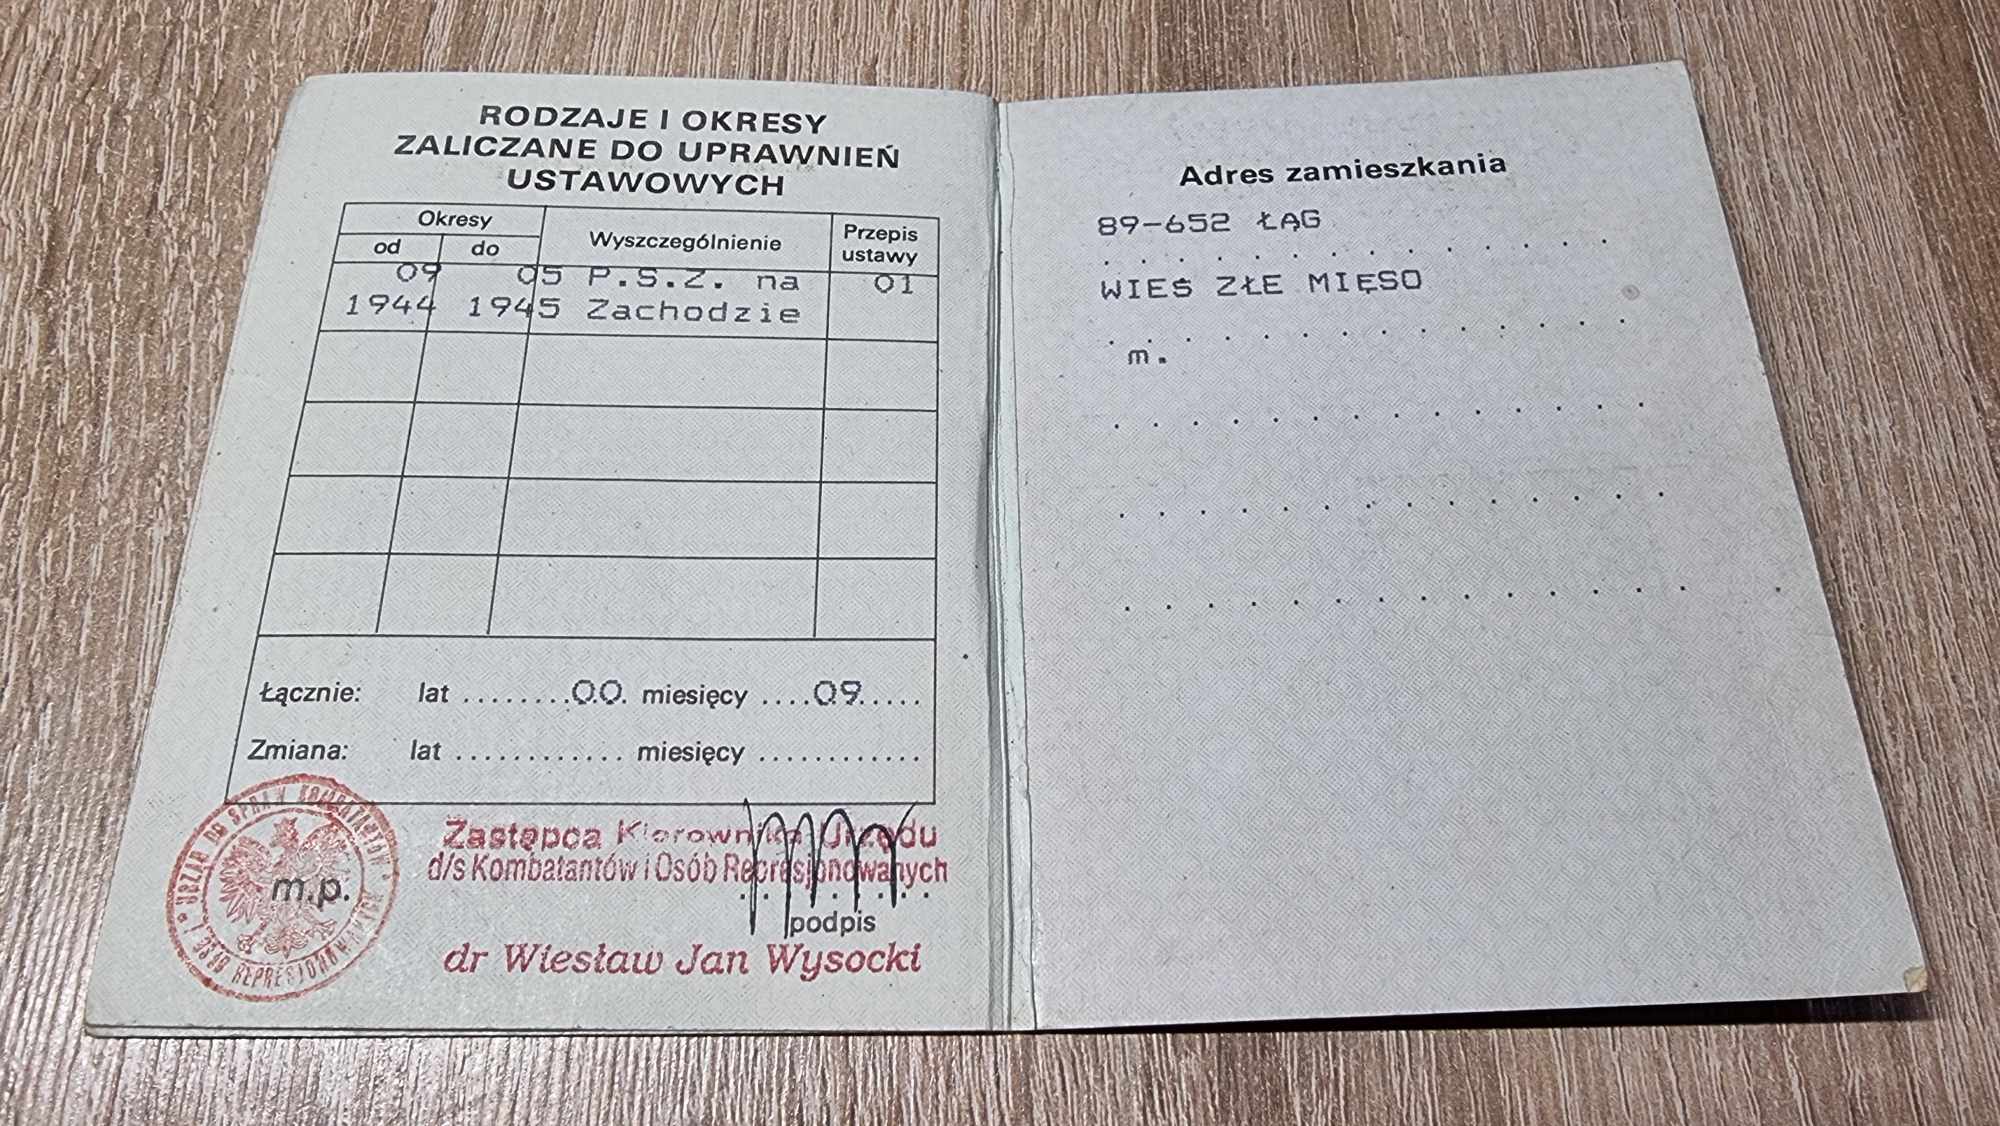 RODZAJE I OKRESY
ZALICZANE DO UPRAWNIEŃ
USTAWOWYCH
Okresy
od do
Wyszczególnienie
Przepis
ustawy
09 05 P.S.Z. na 01
1944 1945 Zachodzie
Łącznie: lat ........00. miesięcy ....09.....
Zmiana: lat ............ miesięcy ............
URZĄD DO SPRAW KOMBATANTÓW I OSÓB REPRESJONOWANYCH
m.p.
Zastępca Kierownika Urzędu
d/s Kombatantów i Osób Represjonowanych
podpis
dr Wiesław Jan Wysocki
Adres zamieszkania
89-652 ŁĄG
WIEŚ ZŁE MIĘSO
m.